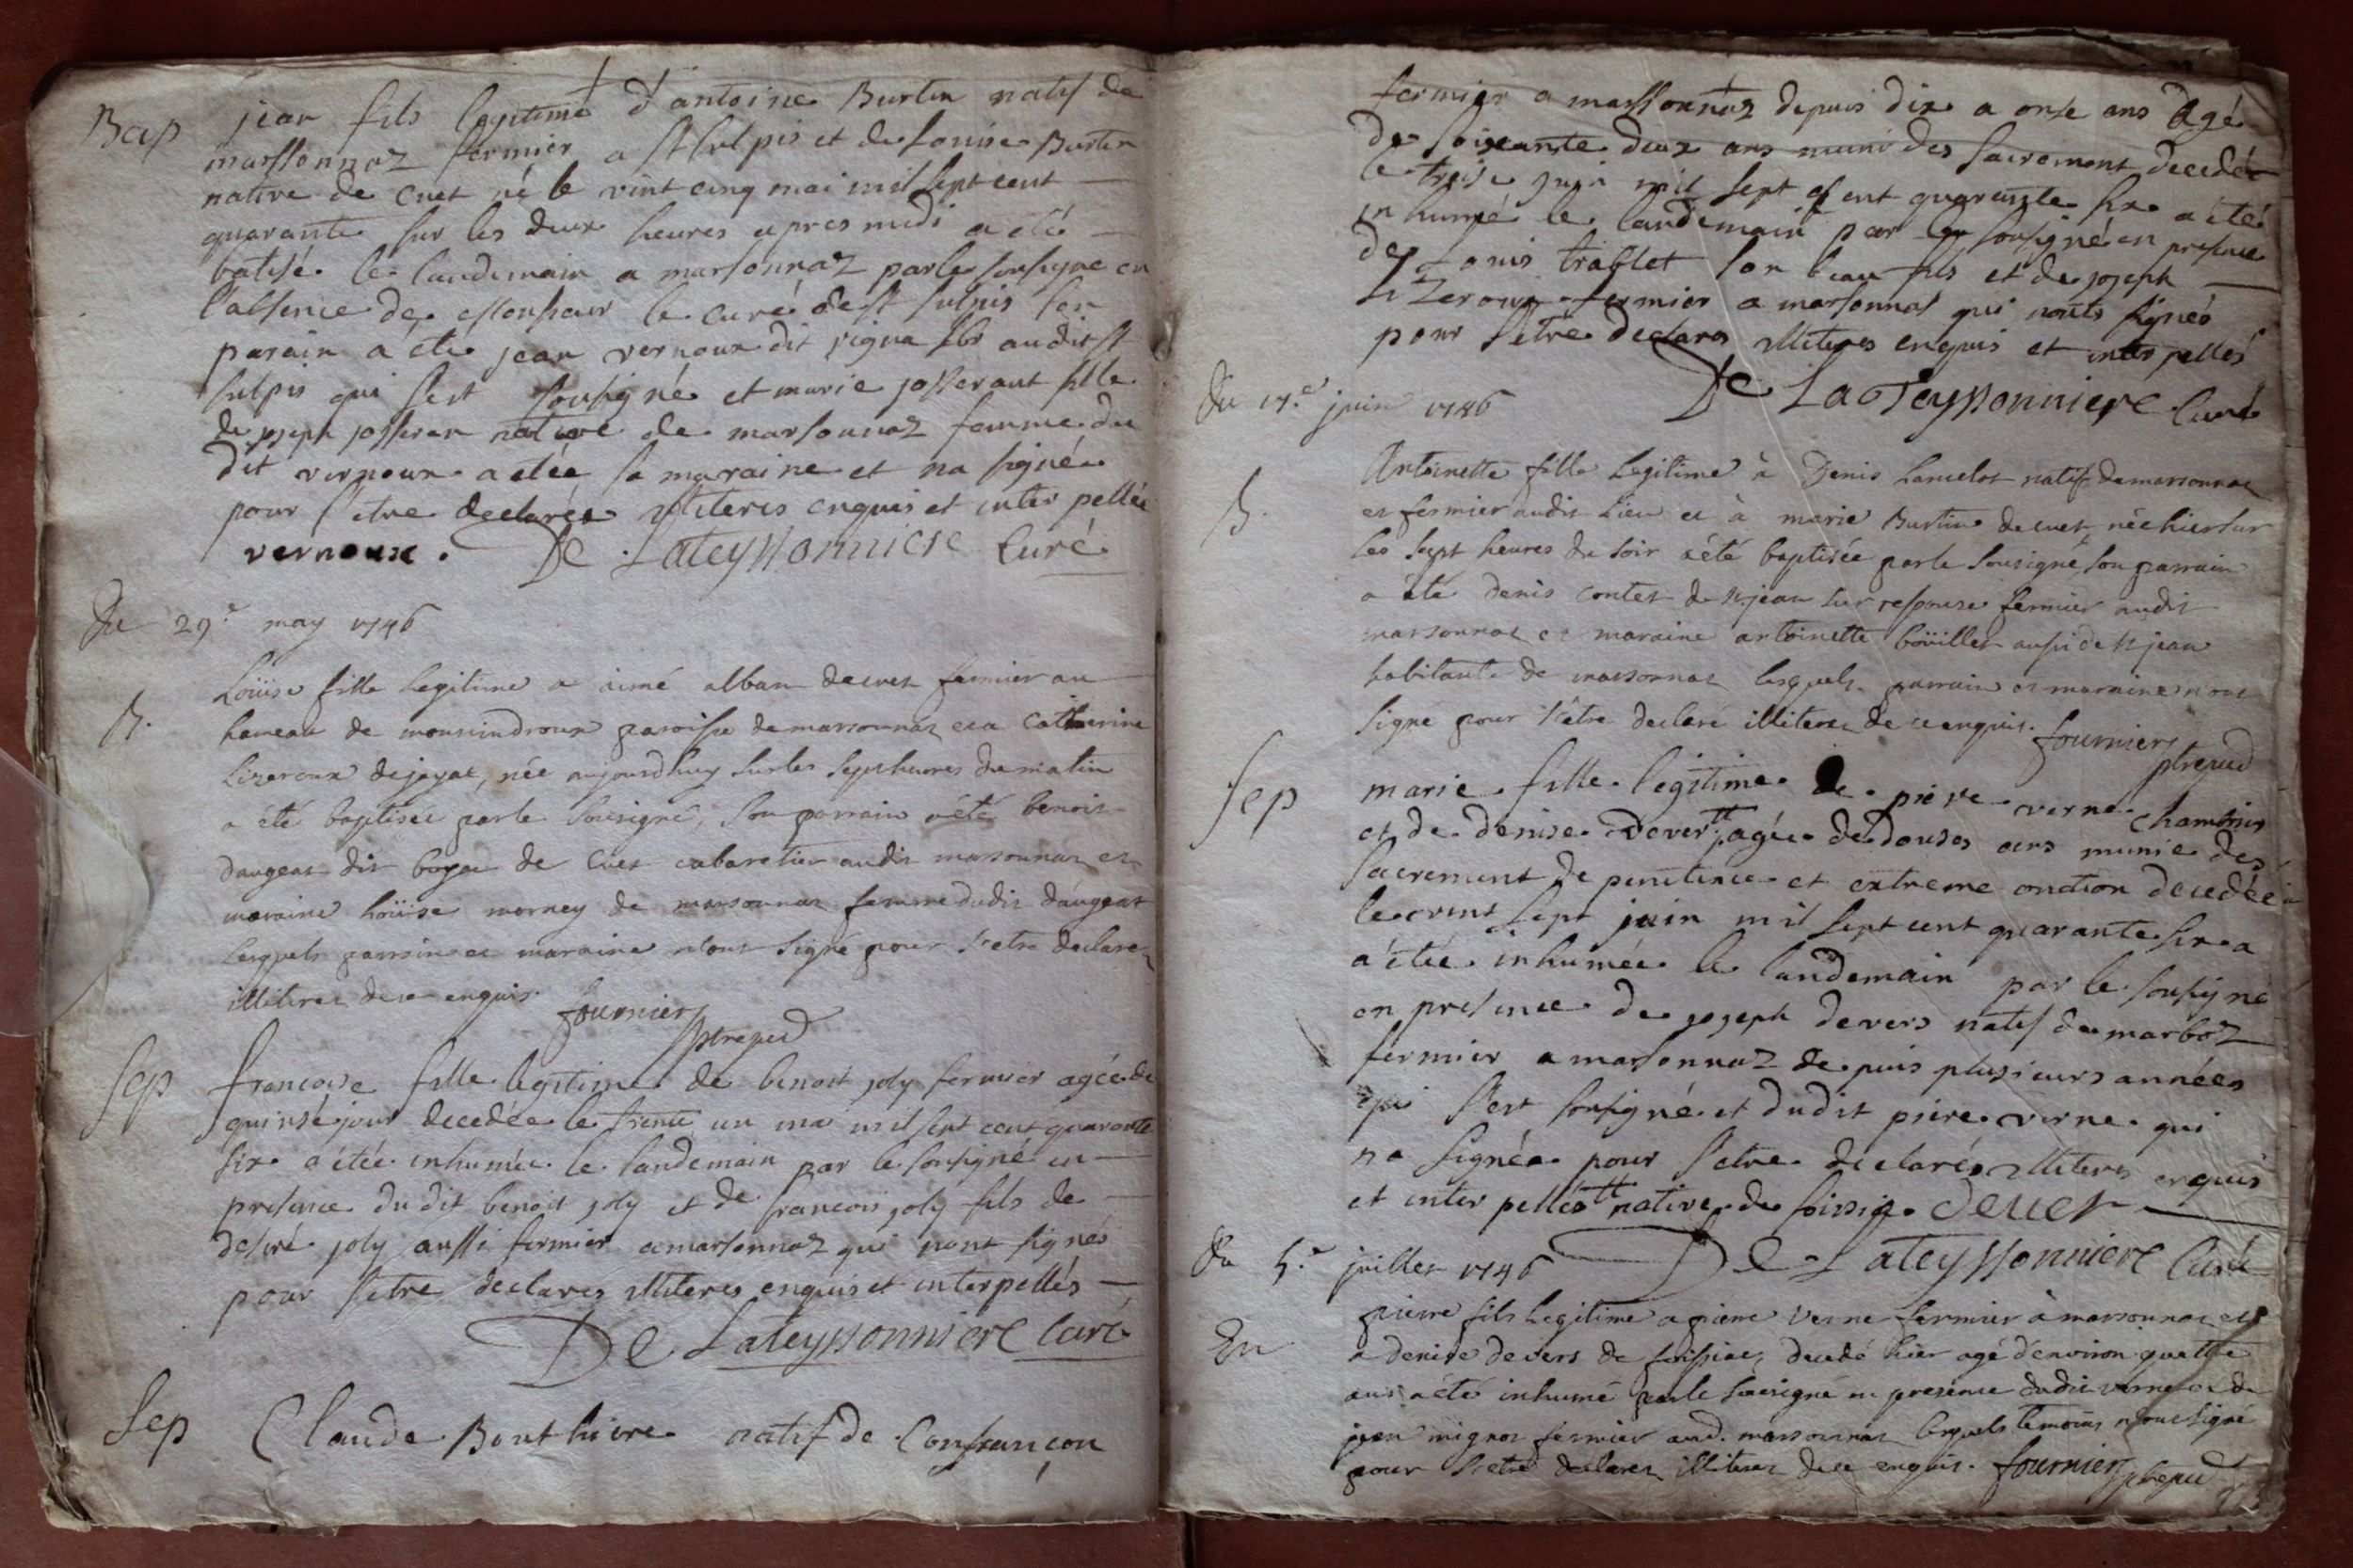 Bap jean fils legitime d'antoine Burtin natif de
marssonnaz fermier a St sulpis et de Louise Burtin
native de Cuet né le vint cinq mai mil sept cent
quarante sur les deux heures apres midi a été
batisé le landemain a marsonnaz par le sousigné en
l'absence de monsieur le curé de st sulpis son
parain a été jean vernoux dit audit st
sulpis qui s'est sousigné et marie josserant fille
de joseph josseran native de marsonnaz femme du
dit vernoux a etée sa maraine et na signée
pour s'etre declarée illiteres enquis et interpellée
vernoux. De Lateyssonniere Curé
Du 29e may 1746
B. Loüise fille legitime a aimé alban de cuet fermier au
hameau de monsindroux paroisse de marsonnaz et a Catherine
Lizeroux de jayat, née aujourdhuy sur les sept heures du matin
a été baptisée par le sousigné, son parrain a été benoit
daugeat dit boya de Cuet cabaretier audit marsonnaz et
maraine Loüise morney de marsonnaz femme dudit daugeat
lesquels parrain et maraine n'ont signé pour s'etre declarez
illiterez de ce enquis. fournier
Sep francoise fille legitime de benoit joly fermier agée de
quinse jour decedée le trente un mai mil sept cent quarante
six a étée inhumée le landemain par le sousigné en
presence du dit benoit joly et de francois joly fils de
desiré joly aussi fermier a marsonnaz qui nont signés
pour s'etre declarés illiteres enquis et interpellés
De Lateyssonniere Curé
Sep Claude Bouthiere natif de Confrançon
fermier a marssonnaz depuis dix a onse ans agé
de soixante deux ans muni des sacrement decedé
le treise juin mil sept cent quarante six a été
inhumé le landemain par le sousigné en presence
de Louis trablet son beau fils et de joseph
Lizeroux fermier a marsonnas qui nonts signés
pour s'etre declarés illiteres enquis et interpellés
De Lateyssonniere Curé
Du 17e juin 1746
B. Antoinette fille legitime à Denis Lancelot natif de marsonnaz
et fermier audit lieu et à marie Burtin de cuet, née hier sur
les sept heures du soir a été baptisée par le sousigné, son parrain
a été denis contet de st jean sur resousse fermier audit
marsonnaz et maraine antoinette boüillet aussi de st jean
habitante de marsonnaz lesquels parrain et maraine n'ont
signé pour s'être declaré illiterez de ce enquis. fournier
Sep marie fille legitime de piere verne
et de denise devers tt agée de douses ans munie des
sacrement de penitence et extreme onction decedée
le vint sept juin mil sept cent quarante six a
a étée inhumée le landemain par le sousigné
en presence de joseph devers natif de marboz
fermier a marsonnaz depuis plusieurs années
qui s'est sousigné et dudit piere verne qui
na signée pour s'etre declarés illiteres enquis
et interpellés tt native de foissia. devers
De Lateyssonniere Curé
Du 5e juillet 1746
En pierre fils legitime a pierre verne fermier à marsonnaz et
a denise devers de foissiat, decedé hier agé d'environ quattre
ans a été inhumé par le sousigné en presence dudit verne et de
jean mignot fermier aud. marsonnaz lesquels temoins n'ont signé
pour s'etre declarez illiterez de ce enquis. fournier